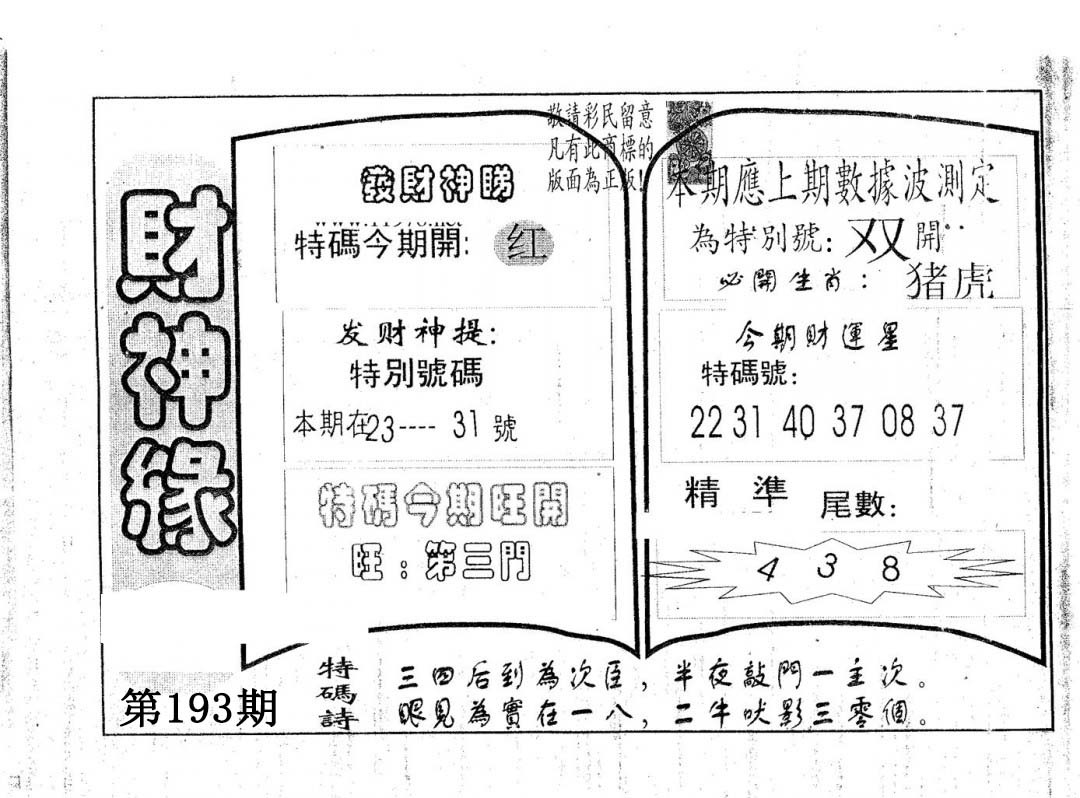 財神緣
第193期
敬請彩民留意
凡有此商標的
版面為正版!
發財神睇
特碼今期開: 红
发财神提:
特別號碼
本期在23---- 31號
特碼今期旺開
旺:第三門
本期應上期數據波測定
為特別號: 双開
必開生肖: 猪虎
今期財運星
特碼號:
22 31 40 37 08 37
精準 尾數:
4 3 8
特碼詩
三四后到為次臣,半夜敲門一主次。
眼見為實在一八,二牛吠影三零個。